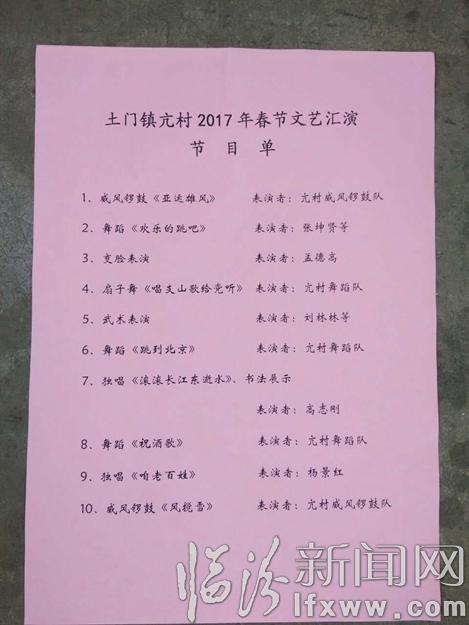 土门镇亢村2017年春节文艺汇演
节 目 单
1、威风锣鼓《亚运雄风》 表演者：亢村威风锣鼓队
2、舞蹈《欢乐的跳吧》 表演者：张坤贤等
3、变脸表演 表演者：孟德高
4、扇子舞《唱支山歌给党听》 表演者：亢村舞蹈队
5、武术表演 表演者：刘林林等
6、舞蹈《跳到北京》 表演者：亢村舞蹈队
7、独唱《滚滚长江东逝水》、书法展示
表演者：高志刚
8、舞蹈《祝酒歌》 表演者：亢村舞蹈队
9、独唱《咱老百姓》 表演者：杨景红
10、威风锣鼓《风搅雪》 表演者：亢村威风锣鼓队
临汾新闻网
lfxww.com